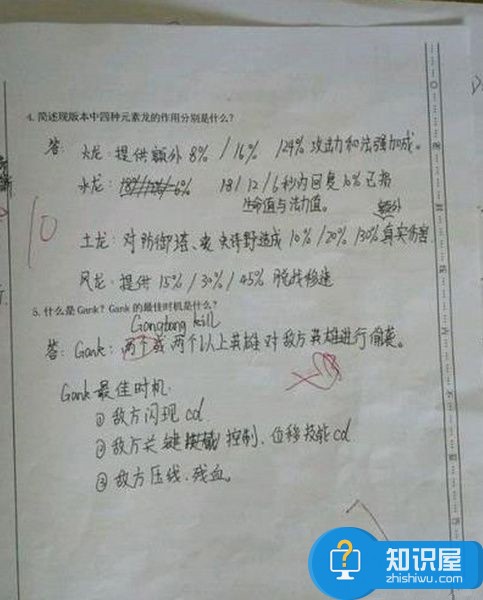 4. 简述现版本中四种元素龙的作用分别是什么？
答：火龙：提供额外 8% / 16% /24% 攻击力和法强加成。
水龙： 18 / 12 / 6 秒内回复 10% 已损
生命值与法力值。
额外
土龙：对防御塔、史诗野造成 10% / 20% /30% 真实伤害
风龙：提供 15% / 30% / 45% 脱战移速
10
5. 什么是 Gank？Gank 的最佳时机是什么？
Gangbang kill
答：Gank：两个或两个以上英雄对敌方英雄进行偷袭。
Gank 最佳时机：
① 敌方闪现 cd
② 敌方关键 控制、位移技能 cd
③ 敌方压线、残血。
知识屋
zhishiwu.com